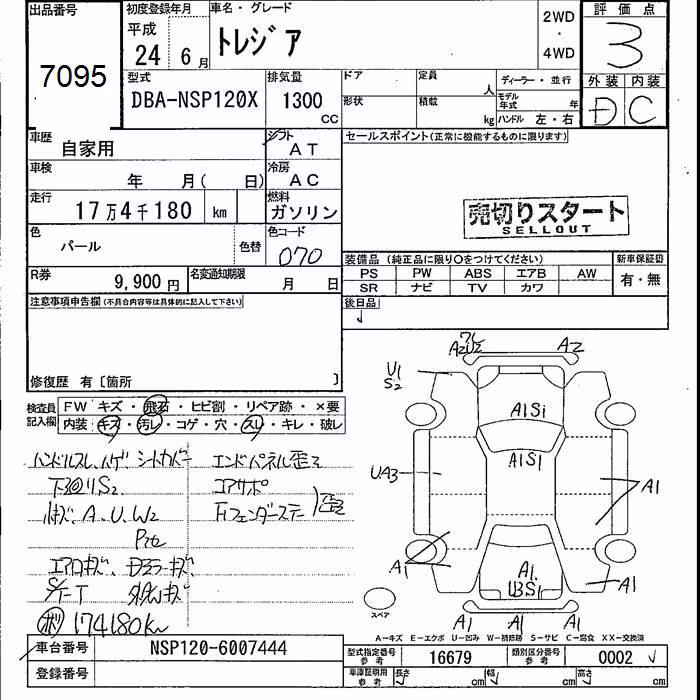 出品番号
7095
初度登録年月
平成
24 6月
車名・グレード
トレジア
2WD
・
4WD
評価点
3
外装 内装
D C
型式
DBA-NSP120X
排気量
1300
CC
ドア
定員
人
ディーラー・並行
形状
積載
kg
モデル年式 年
ハンドル 左・右
車歴
自家用
シフト
AT
セールスポイント(正常に機能するものに限ります)
車検
年 月( 日)
冷房
AC
走行
17万4千180 km
燃料
ガソリン
売切りスタート
SELLOUT
色
パール
色替
色コード
070
装備品(純正品に限り○をつけてください)
新車保証書
PS PW ABS エアB AW
SR ナビ TV カワ
有・無
R券
9,900円
名変通知期限
月 日
後日品
注意事項申告欄(不具合内容等は具体的に記入して下さい)
修復歴 有〔箇所 〕
検査員記入欄
FW キズ・飛石・ヒビ割・リペア跡・×要
内装 キズ・汚レ・コゲ・穴・スレ・キレ・破レ
ハンドルスレ、ハゲ シートカバー
エンドパネル歪ミ
下廻りS2
コアサポ
A、U、W2
Fフェンダーステー
歪ミ
エアロキズ、
174180km
U1
S2
A2U2
A2
A1S1
A1S1
UA3
A1
A1
A1
A1
U3S1
A1
A1
スペア
A-キズ E-エクボ U-凹み W-補修跡 S-サビ C-腐食 XX-交換済
車台番号
NSP120-6007444
型式指定番号
参考
16679
類別区分番号
参考
0002
登録番号
車庫証明用
参考
長さ cm
幅 cm
高さ cm